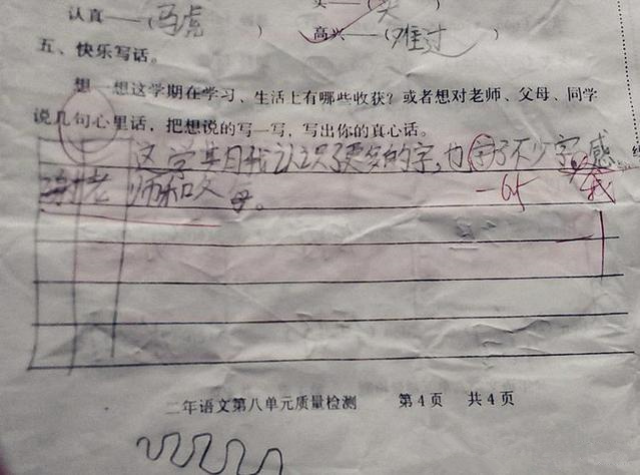 认真——(马虎 )
高兴——(难过 )
五、快乐写话。
想一想这学期在学习、生活上有哪些收获？或者想对老师、父母、同学
说几句心里话，把想说的写一写，写出你的真心话。
这学期我认识了更多的字，也写了不少字。感
谢老师和父母。
-6分 我
二年语文第八单元质量检测 第4页 共4页